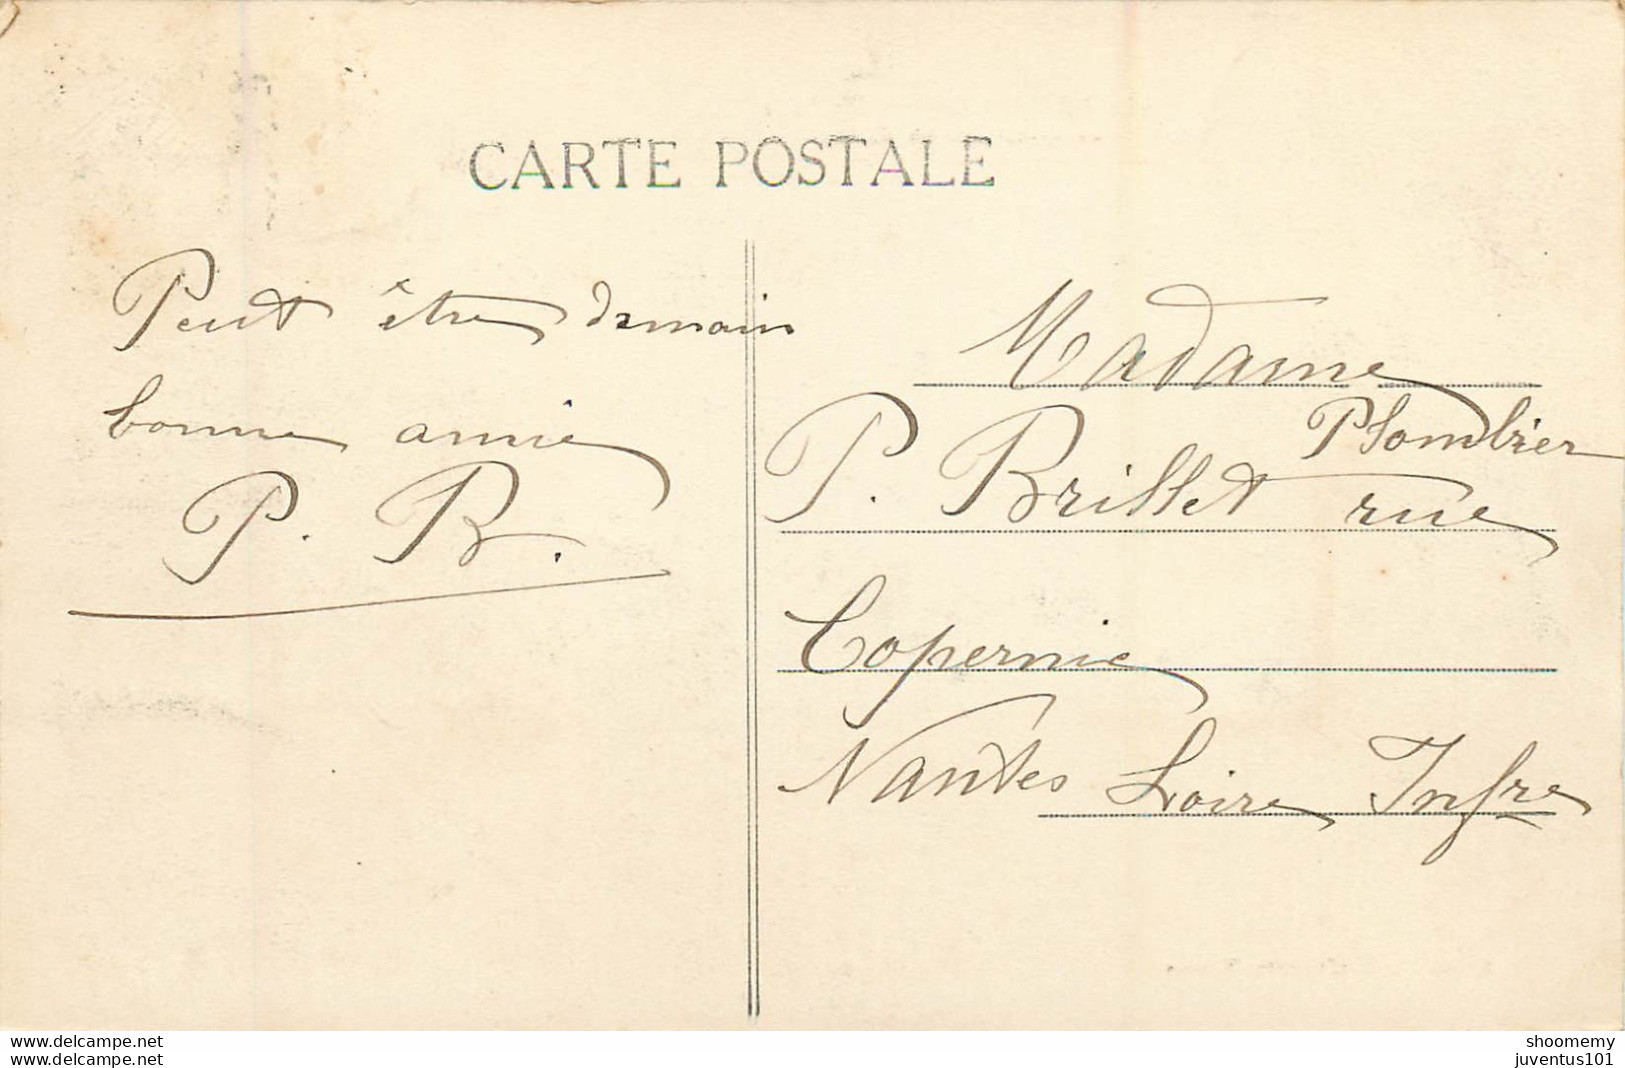 CARTE POSTALE
Peut être demain
bonne amie
P. B.
Madame
P. Brillet Plombier rue
Copernic
Nantes Loire Infre
www.delcampe.net
www.delcampe.net
shoomemy
juventus101